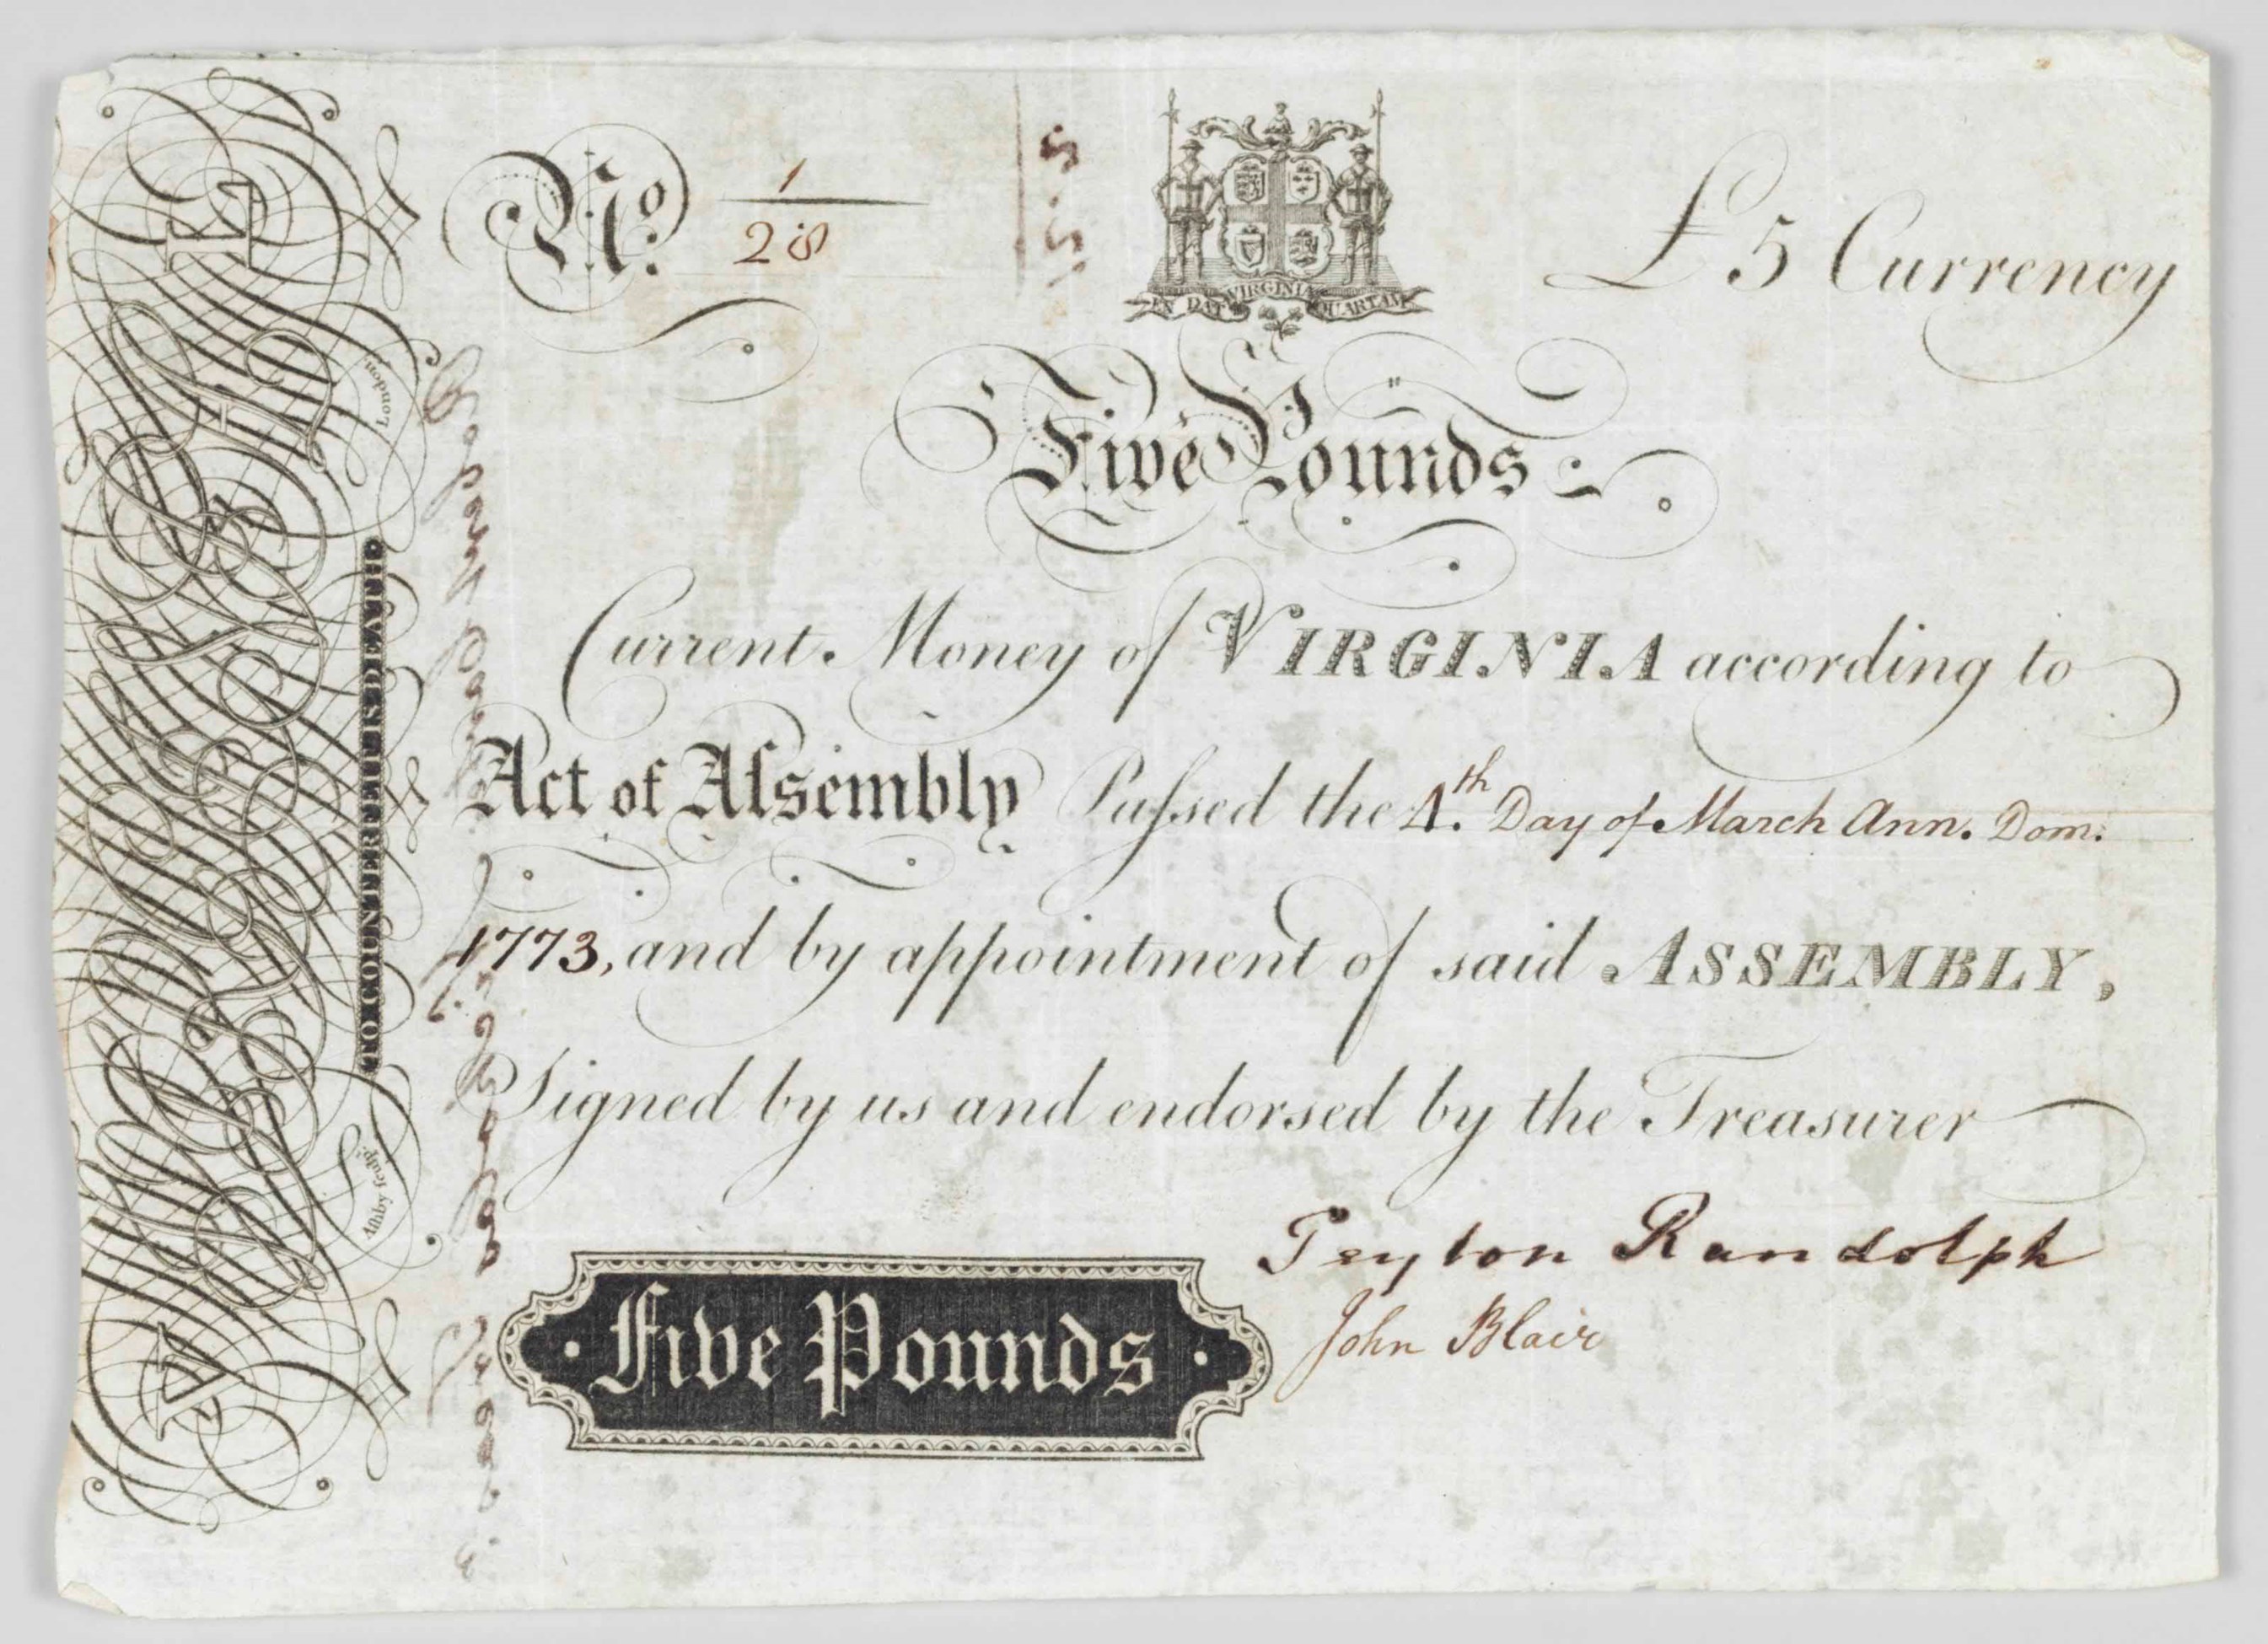 No. 1
28
EN DAT VIRGINIA QUARTAM
£5 Currency
Five Pounds
Current Money of VIRGINIA according to
Act of Aſsembly Paſsed the 4th. Day of March Ann. Dom:
1773, and by appointment of said ASSEMBLY,
Signed by us and endorsed by the Treasurer
Peyton Randolph
John Blair
Five Pounds
TO COUNTERFEIT IS DEATH
Aſhby sculpt.
London